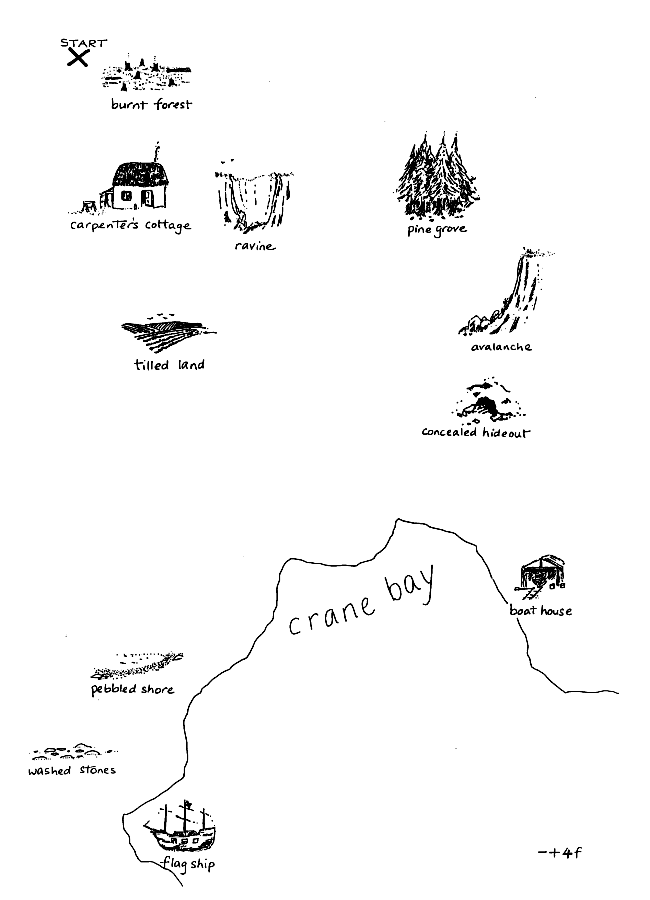 START
burnt forest
carpenter's cottage
ravine
pine grove
avalanche
tilled land
concealed hideout
crane bay
boat house
pebbled shore
washed stones
flag ship
-+4f